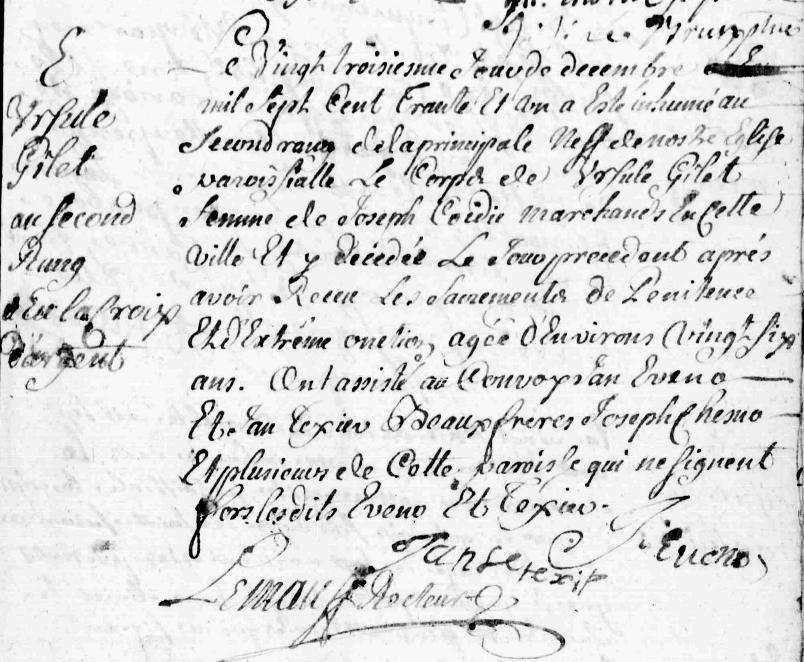 E
Ursule
Gilet
au second
Rang
de la Croix
d'argent
Le Vingt troisiesme Jour de decembre
mil sept Cent Trante Et un a Esté inhumé au
second rang de la principale Neff de nostre Eglise
paroissialle Le Corps de Ursule Gilet
femme de Joseph marchands En Cette
ville Et y décedée Le Jour precedent aprés
avoir Receu Les Sacrements de Penitence
Et d'Extréme onction, agée d'Environs Vingt six
ans. Ont assisté au Convoy Jan Eveno
Et Jan Texier Beauxfréres Joseph Chesno
Et plusieurs de Cette paroisse qui ne signent
fors lesdits Eveno Et Texier.
Jan Le texier
J. Eveno
Recteur